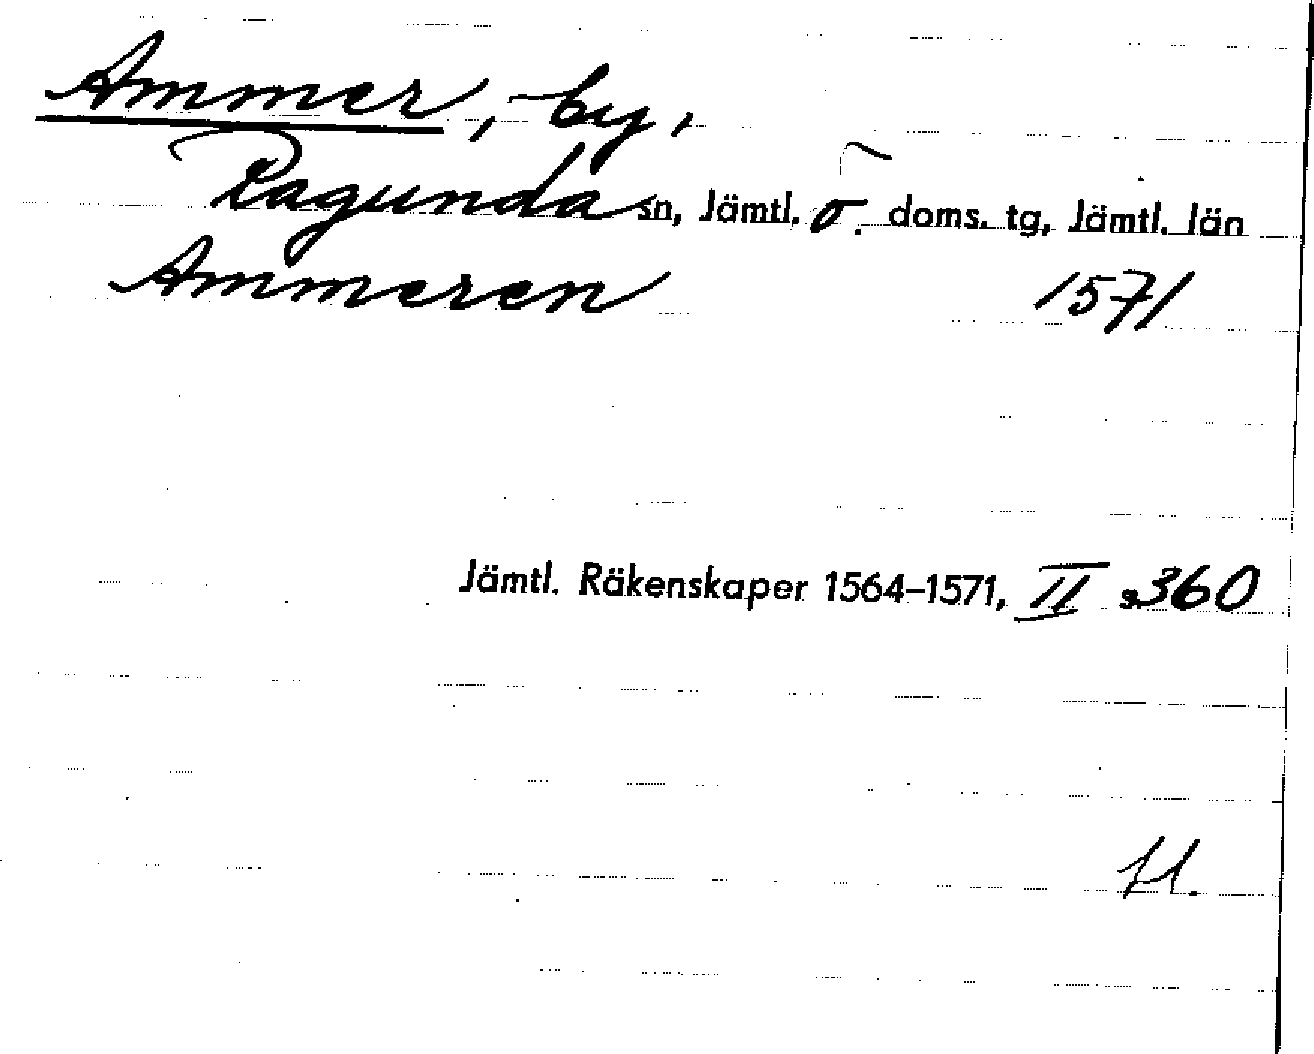 Ammer, by,
Ragunda sn, Jämtl. ö. doms. tg, Jämtl. län
Ammeren 1571
Jämtl. Räkenskaper 1564–1571, II s. 360
H.